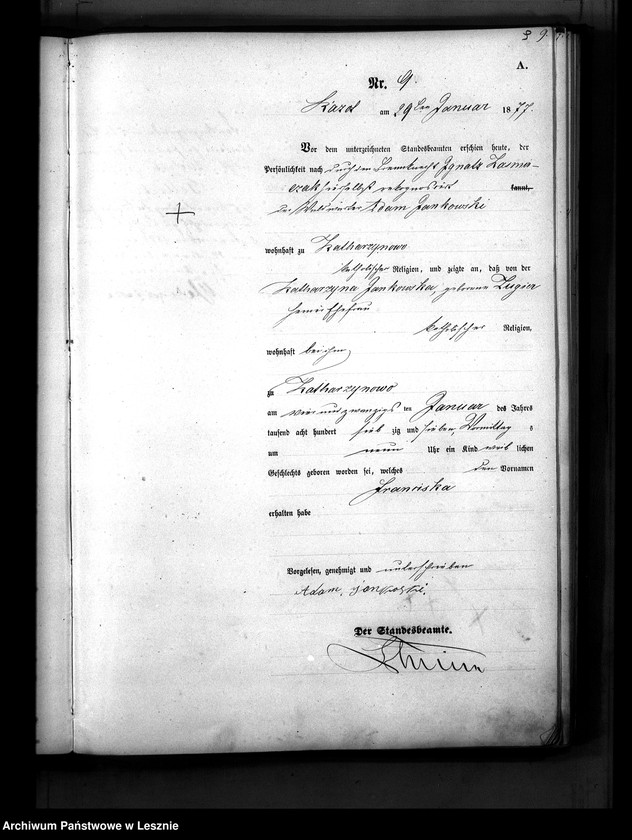 9.
A.
Nr. 9.
am 29ten Januar 1877.
Vor dem unterzeichneten Standesbeamten erschien heute, der
Persönlichkeit nach durch den Ignatz Kasma-
czak rekognoscirt kannt,
der Adam Jankowski
wohnhaft zu Katharzynowo
katholischer Religion, und zeigte an, daß von der
Katharzyna Jankowska, geborene
seiner Ehefrau
katholischer Religion,
wohnhaft bei ihm
zu Katharzynowo
am vier und zwanzigsten Januar des Jahres
tausend acht hundert siebzig und sieben, Vormittags
um neun Uhr ein Kind weiblichen
Geschlechts geboren worden sei, welches den Vornamen
Franciska
erhalten habe
Vorgelesen, genehmigt und unterschrieben
Adam
Der Standesbeamte.
Archiwum Państwowe w Lesznie